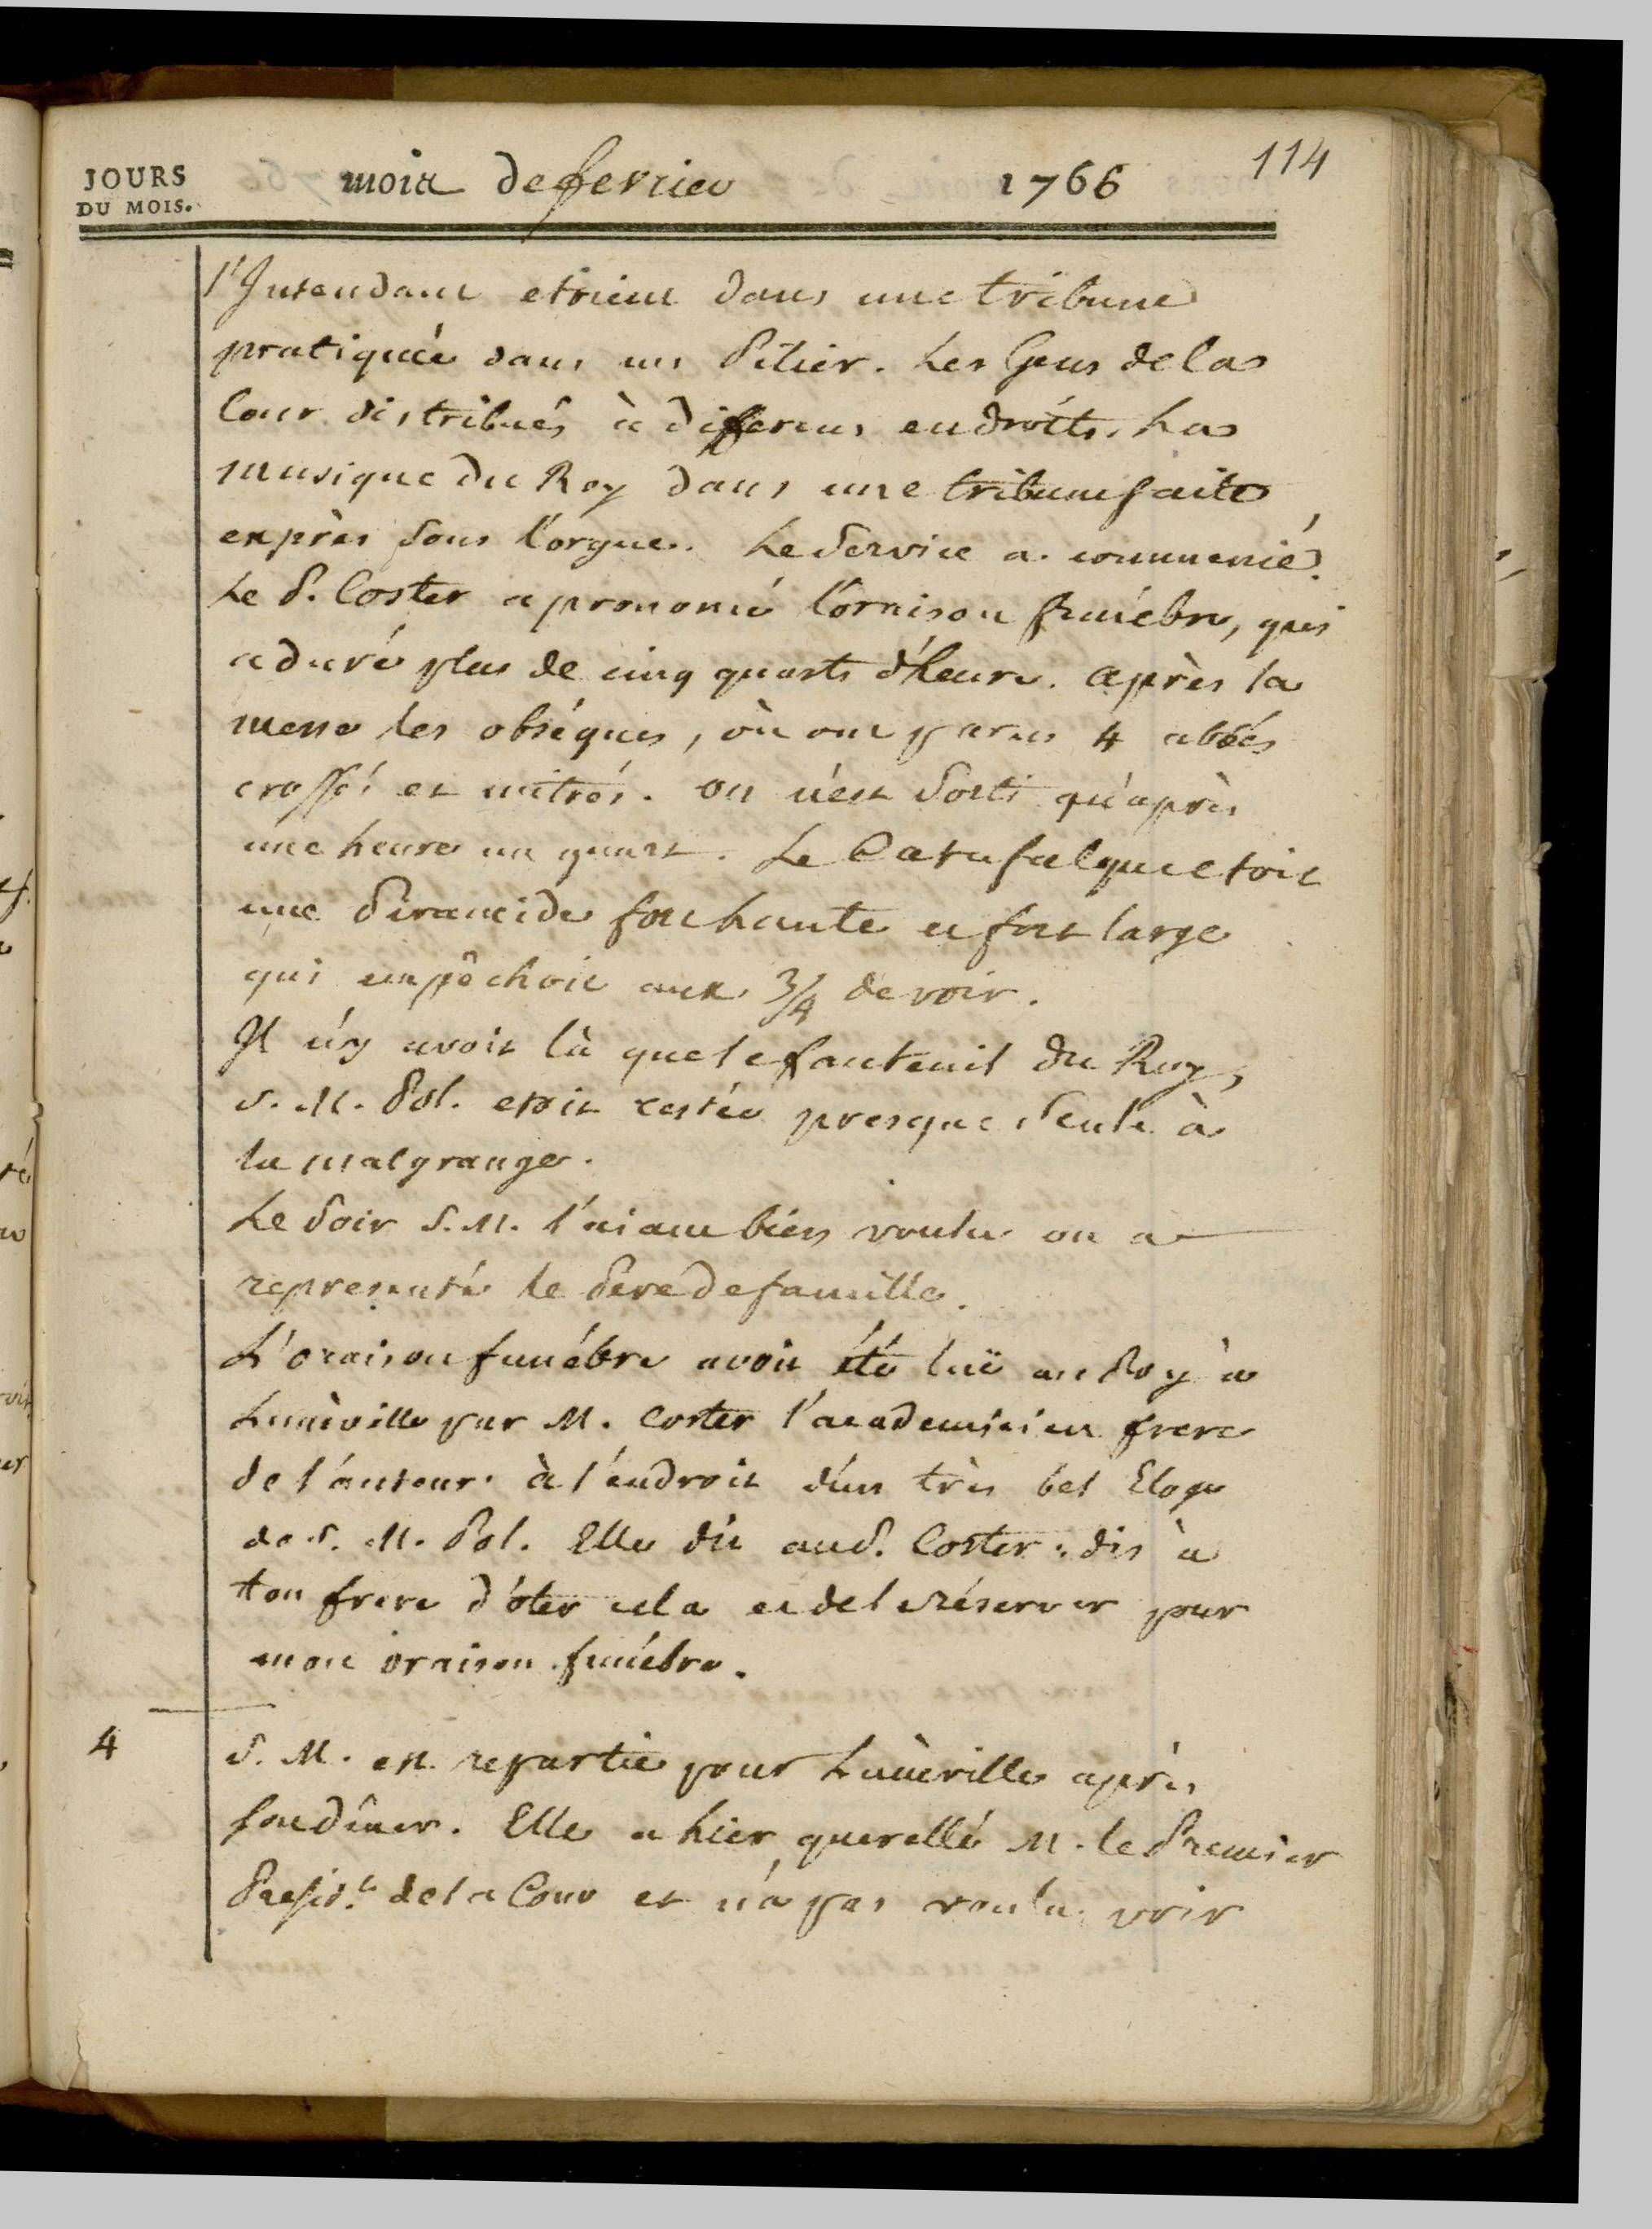 114
JOURS
DU MOIS.
mois de fevrier 1766
l'Intendant etoient dans une tribune
pratiquée dans un Pilier. Les Gens de la
Cour distribués à differens endroits. La
musique du Roy dans une tribune faite
exprès sous l'orgue. Le Service a commencé.
Le P. Coster a prononcé l'oraison funébre, qui
a duré plus de cinq quarts d'heure. après la
messe les obséques, où ont paru 4 abbés
crossés et mitrés. on n'est sorti qu'après
une heure un quart. Le Catafalque etoit
une Piramide fort haute et fort large
qui empêchoit aux 3/4 de voir.
Il n'y avoit là que le fauteuil du Roy,
S. M. Pol. etoit restée presque seule à
la malgrange.
Le Soir S. M. l'aiant bien voulu on a
representé le Pere de famille.
L'oraison funébre avoit été luë au Roy à
Lunéville par M. Coster l'academicien frere
de l'auteur. à l'endroit d'un très bel Eloge
de S. M. Pol. Elle dit aud. Coster: dis à
ton frere d'ôter cela et de le réserver pour
mon oraison funébre.
4 S. M. est repartie pour Lunéville après
son dîner. Elle a hier querellé M. le Premier
Presid.t de la Cour et n'a pas voulu voir